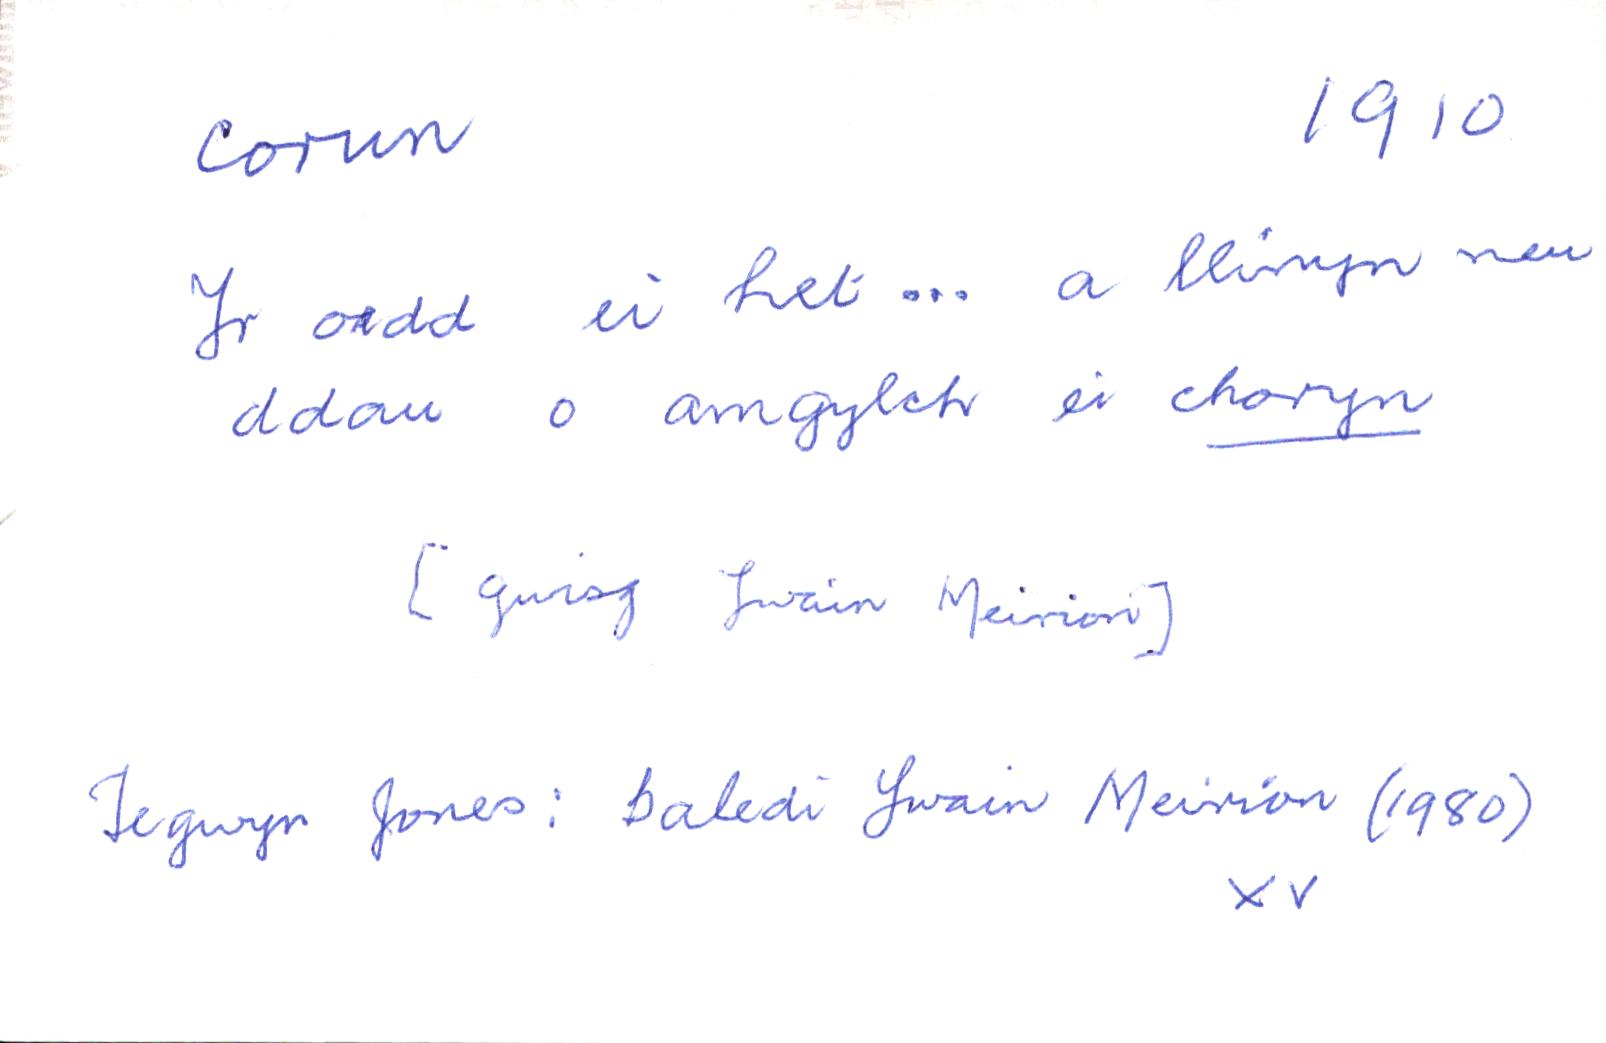 corun 1910
Yr oedd ei het ... a llinyn neu
ddau o amgylch ei choryn
[gwisg Ywain Meirion]
Tegwyn Jones: Baledi Ywain Meirion (1980)
xv